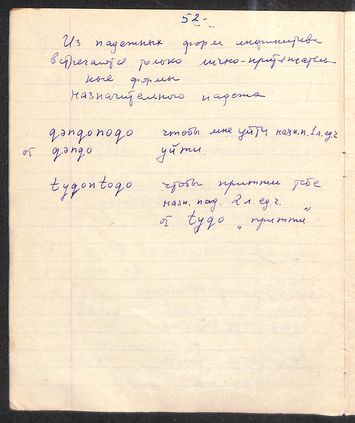 52.
Из падежных форм инфинитива
встречаются только лично-притяжатель-
ные формы
назначительного падежа
дэпдополо чтобы мне уйти назн.п. 1 л. ед.ч
от дэпдо уйти.
tудоптодо чтобы прийти тебе
назн. пад. 2 л. ед.ч.
от tудо „прийти"